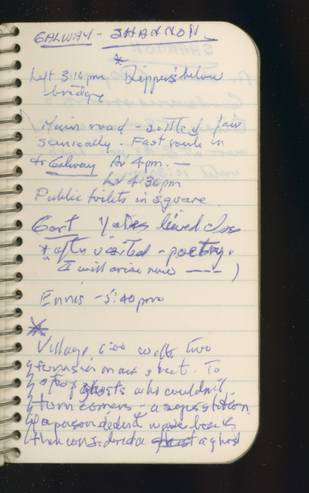 GALWAY - SHANNON
*
Left 3:16 pm Rippers below
bridge
Main road - fair
scenically. Fast route in
to Galway Ar 4pm. -
Lv 4:36pm
Public toilets in square
Gort Yeats lived close
* often visited - poetry.
I will arise now ---- )
Ennis - 5:40pm
*
Village with two
turns in main street. To
ghosts who couldn't
turn corners - a superstition
a person didn't wave back
then considered a ghost